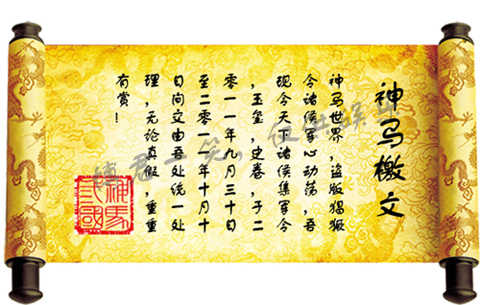 神马檄文
神马世界，盗版猖獗
今诸侯军心动荡，吾
现今天下诸侯集军令
，玉玺，史卷，于二
零一一年九月三十日
至二零一一年十月十
日间交由吾处统一处
理，无论真假，重重
有赏！
博君一笑，仅供娱乐